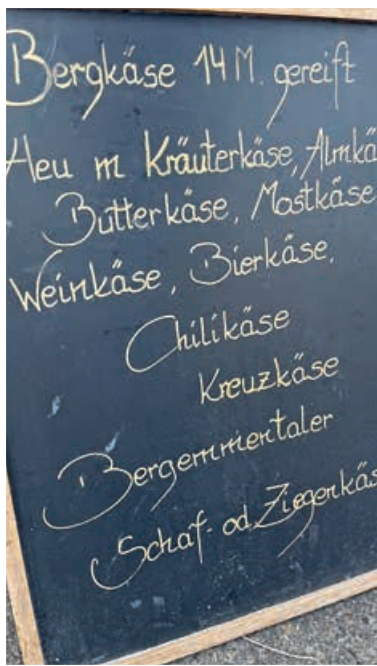 Bergkäse 14 M. gereift
Heu m Kräuterkäse, Almkä
Butterkäse, Mostkäse
Weinkäse, Bierkäse,
Chilikäse
Kreuzkäse
Bergemmentaler
Schaf- od. Ziegenkäs